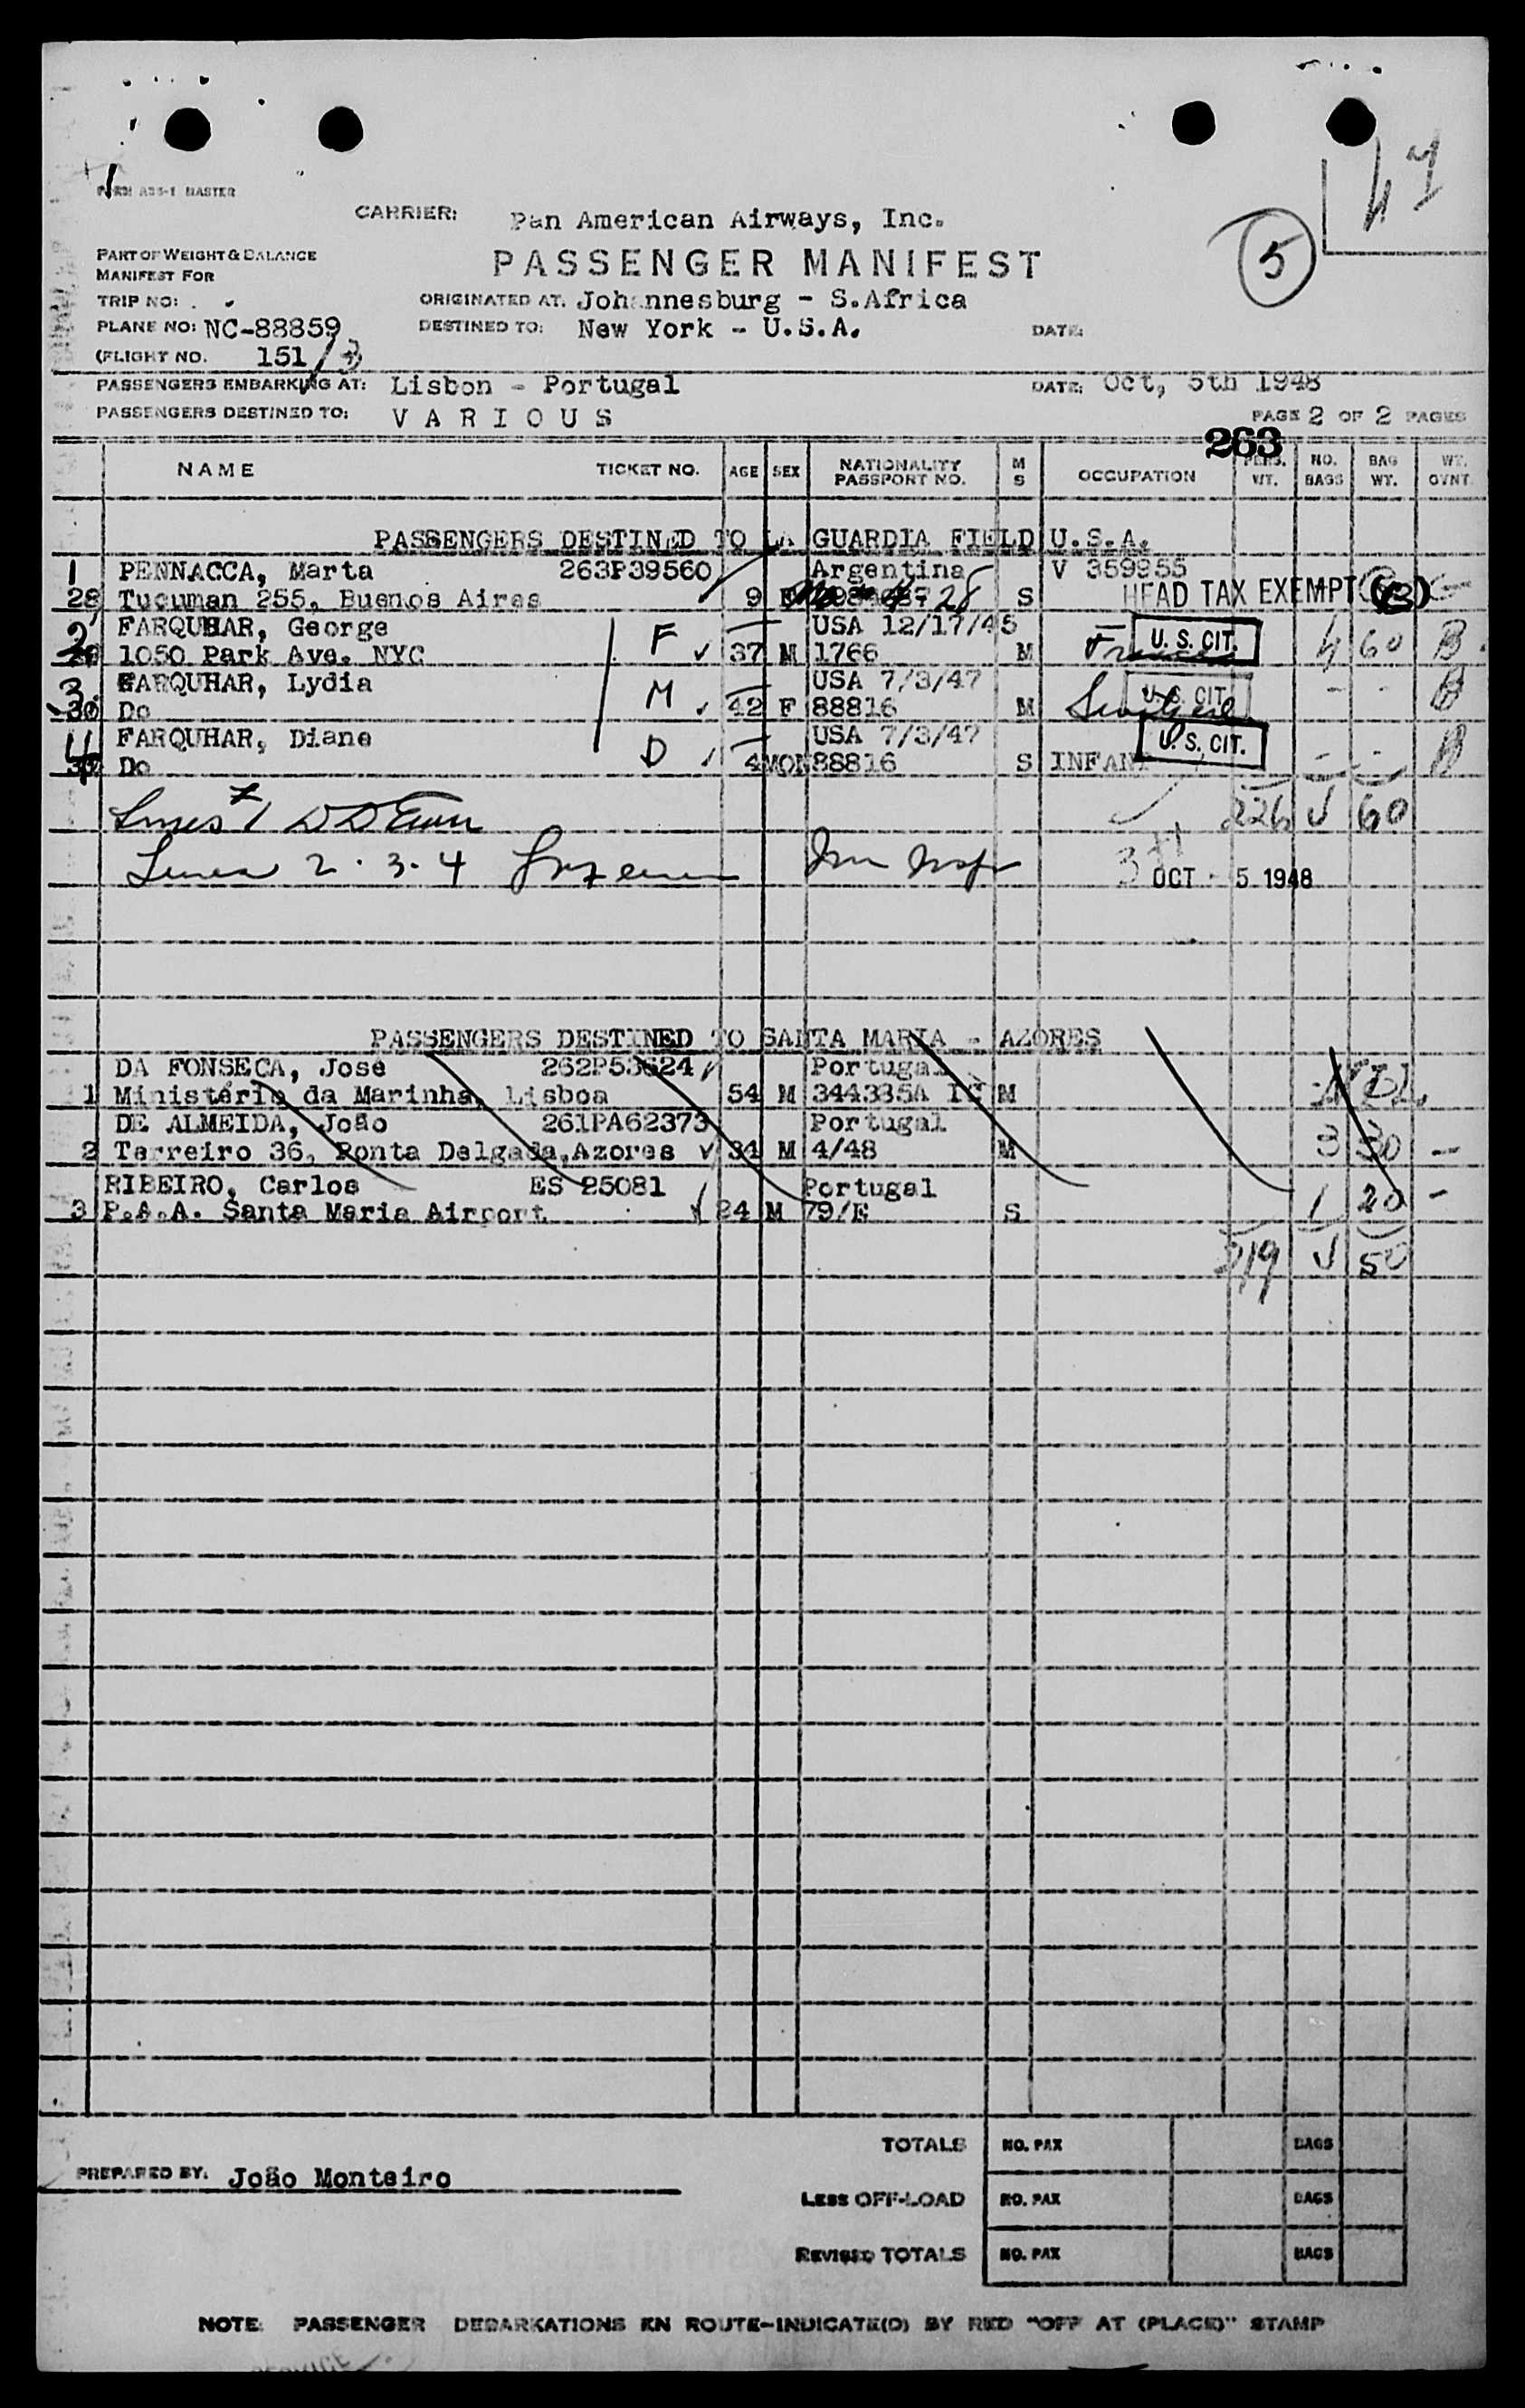 FORM ABS-1 MASTER
47
CARRIER: Pan American Airways, Inc.
5
PART OF WEIGHT & BALANCE
MANIFEST FOR
PASSENGER MANIFEST
TRIP NO:
ORIGINATED AT. Johannesburg - S.Africa
PLANE NO: NC-88859
DESTINED TO: New York - U.S.A.
DATE:
(FLIGHT NO. 151/3
PASSENGERS EMBARKING AT: Lisbon - Portugal
DATE: Oct, 5th 1948
PASSENGERS DESTINED TO: VARIOUS
PAGE 2 OF 2 PAGES
263
NAME TICKET NO. AGE SEX NATIONALITY PASSPORT NO. M S OCCUPATION PERS. WT. NO. BAGS BAG WT. WT. OVNT.
PASSENGERS DESTINED TO LA GUARDIA FIELD U.S.A.
1 PENNACCA, Marta 263P39560 Argentina V 359955
28 Tucuman 255, Buenos Aires 9 F S HEAD TAX EXEMPT (B)
2 FARQUHAR, George F USA 12/17/45 U. S. CIT.
1050 Park Ave. NYC 37 M 1766 M 4 60 B
3. FARQUHAR, Lydia M USA 7/3/47 U. S. CIT.
30 Do 42 F 88816 M - - B
4 FARQUHAR, Diane D USA 7/3/47 U. S. CIT.
Do 4MON 88816 S INFANT - - B
226 60
Lines 2 . 3 . 4
OCT - 5 1948
PASSENGERS DESTINED TO SANTA MARIA - AZORES
DA FONSECA, José 262P53624 Portugal
1 Ministério da Marinha, Lisboa 54 M 344385A M
DE ALMEIDA, João 261PA62373 Portugal
2 Terreiro 36, Ponta Delgada, Azores 34 M 4/48 M 3 30 -
RIBEIRO, Carlos ES 25081 Portugal
3 P.A.A. Santa Maria Airport 24 M 79/E S 1 20 -
219 50
TOTALS NO. PAX BAGS
PREPARED BY. João Monteiro
LESS OFF-LOAD NO. PAX BAGS
REVISED TOTALS NO. PAX BAGS
NOTE: PASSENGER DEBARKATIONS EN ROUTE-INDICATE(D) BY RED "OFF AT (PLACE)" STAMP